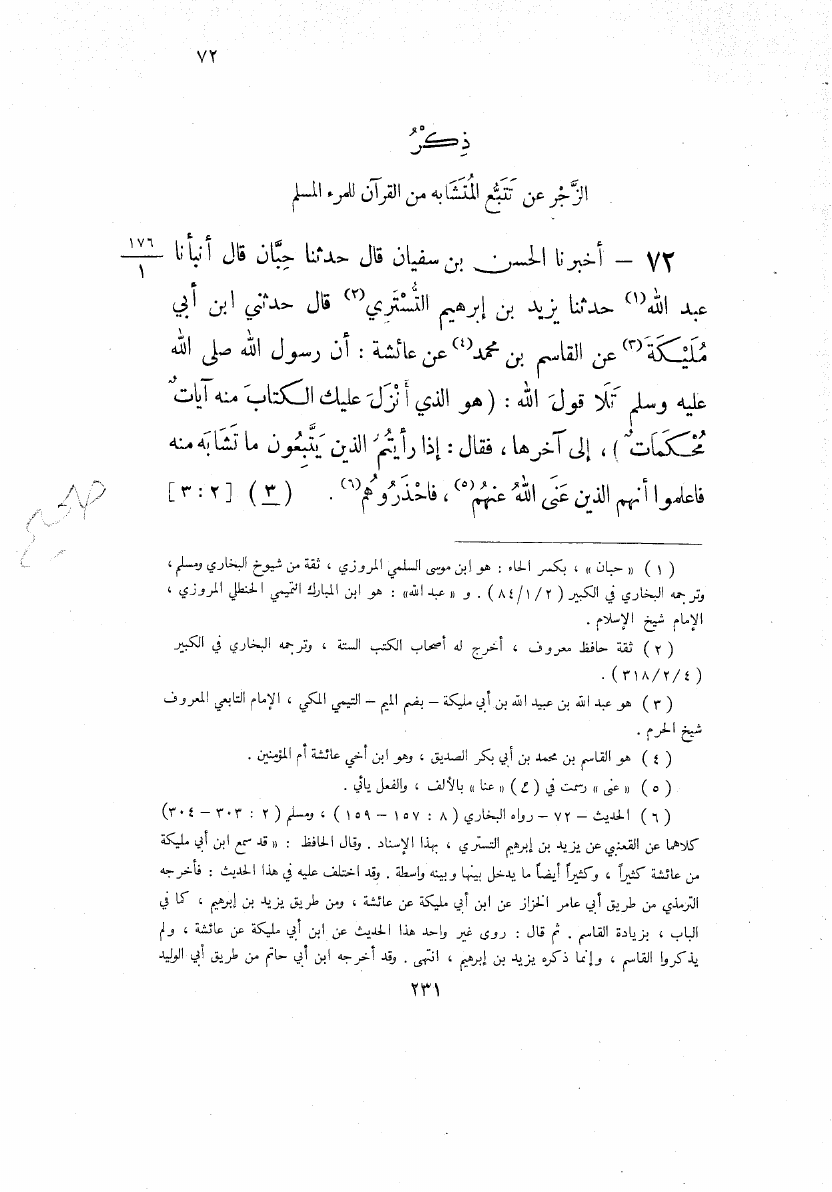 ٧٢
ذِكْرُ
الزَّجْر عن تَتَبُّع المُتَشَابه من القرآن للمرء المسلم
٧٢ – أخبرنا الحسن بن سفيان قال حدثنا حِبَّان قال أنبأنا
١٧٦
١
عبد الله(١) حدثنا يزيد بن إبرهيم التُّسْتَري(٢) قال حدثني ابن أبي
مُلَيْكَةَ(٣) عن القاسم بن محمد(٤) عن عائشة : أن رسول الله صلى الله
عليه وسلم تَلَا قولَ الله : (هو الذي أَنْزَلَ عليك الكتابَ منه آياتٌ
مُحْكَمَاتٌ) ، إلى آخرها ، فقال : إذا رأيتُمُ الذين يَتَّبِعُون ما تَشَابَه منه
فاعلموا أنهم الذين عَنَى اللهُ عنهُم(٥) ، فَاحْذَرُوهُم(٦) . (٣) [٣ : ٢]
صحيح
(١) «حبان» ، بكسر الحاء : هو ابن موسى السلمي المروزي ، ثقة من شيوخ البخاري ومسلم ،
وترجمه البخاري في الكبير (٨٤/١/٢) . و «عبد الله» : هو ابن المبارك التميمي الحنظلي المروزي ،
الإمام شيخ الإسلام .
(٢) ثقة حافظ معروف ، أخرج له أصحاب الكتب الستة ، وترجمه البخاري في الكبير
(٣١٨/٢/٤) .
(٣) هو عبد الله بن عبيد الله بن أبي مليكة – بضم الميم – التيمي المكي ، الإمام التابعي المعروف
شيخ الحرم .
(٤) هو القاسم بن محمد بن أبي بكر الصديق ، وهو ابن أخي عائشة أم المؤمنين .
(٥) «عنى» رسمت في (ع) «عنا» بالألف ، والفعل يائي .
(٦) الحديث – ٧٢ – رواه البخاري (٨ : ١٥٧ – ١٥٩) ، ومسلم (٢ : ٣٠٣ – ٣٠٤)
كلاهما عن القعنبي عن يزيد بن إبرهيم التستري ، بهذا الإسناد . وقال الحافظ : «قد سمع ابن أبي مليكة
من عائشة كثيراً ، وكثيراً أيضاً ما يدخل بينها وبينه واسطة . وقد اختلف عليه في هذا الحديث : فأخرجه
الترمذي من طريق أبي عامر الخزاز عن ابن أبي مليكة عن عائشة ، ومن طريق يزيد بن إبرهيم ، كما في
الباب ، بزيادة القاسم . ثم قال : روى غير واحد هذا الحديث عن ابن أبي مليكة عن عائشة ، ولم
يذكروا القاسم ، وإنما ذكره يزيد بن إبرهيم ، انتهى . وقد أخرجه ابن أبي حاتم من طريق أبي الوليد
٢٣١